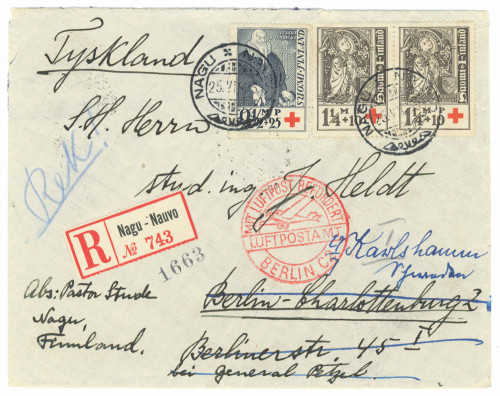 Tyskland
S. H. Herrn
stud. ing. J. Heldt
Berlin-Charlottenburg 2
Berlinerstr. 45 I
bei General Petzel.
Karlshamn
Schweden
Rek.
R
Nagu - Nauvo
№ 743
1663
Abs: Pastor Stude
Nagu,
Finnland.
MIT LUFTPOST BEFÖRDERT
LUFTPOSTAMT
BERLIN C2
NAGU
25. VI
1¼ M P
+10
1¼ M P
+10
SUOMI-FINLAND